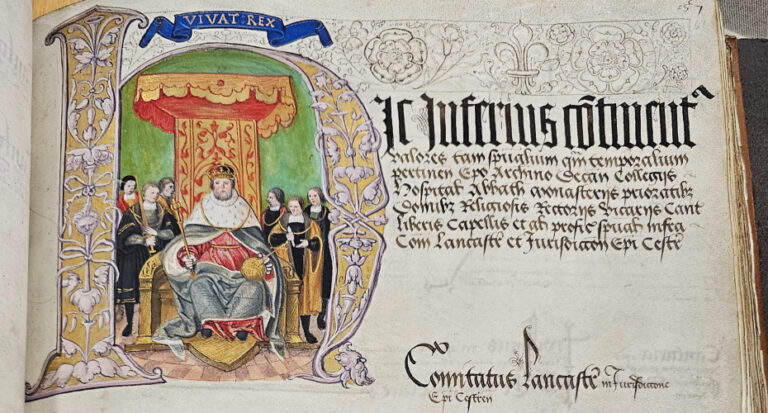 VIVAT REX
Hic Inferius cōtinentᵃ
valores tam spūalium qm̄ temporalium
pertinen Epo Archino Decan Collegijs
Hospital Abbath monasterijs prioratibȝ
Domibȝ Religiosis Rectorijs Vicarijs Cant
liberis Capellis et al profic spual infra
Com Lancastr et Jurisdiccon Epi Cestr
Comitatus Lancastr in Jurisdiccone
Epi Cestren